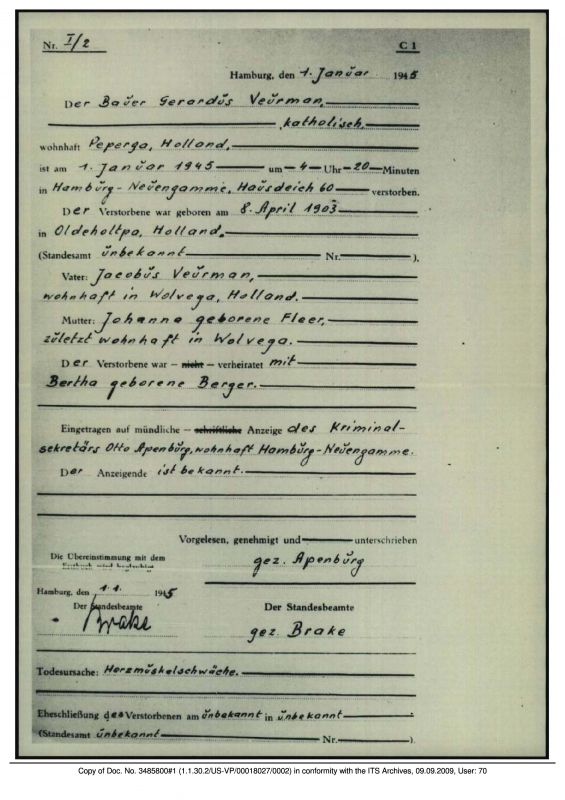 Nr. I/2 C 1
Hamburg, den 1. Januar 1945
Der Bauer Gerardus Veurman,
katholisch,
wohnhaft Peperga, Holland,
ist am 1. Januar 1945 um 4 Uhr 20 Minuten
in Hamburg-Neuengamme, Hausdeich 60 verstorben.
Der Verstorbene war geboren am 8. April 1903
in Oldeholtpa, Holland.
(Standesamt unbekannt Nr. ).
Vater: Jacobus Veurman,
wohnhaft in Wolvega, Holland.
Mutter: Johanna geborene Fleer,
zuletzt wohnhaft in Wolvega.
Der Verstorbene war – nicht – verheiratet mit
Bertha geborene Berger.
Eingetragen auf mündliche – schriftliche Anzeige des Kriminal-
sekretärs Otto Apenburg, wohnhaft Hamburg-Neuengamme.
Der Anzeigende ist bekannt.
Vorgelesen, genehmigt und unterschrieben
gez. Apenburg
Die Übereinstimmung mit dem
Erstbuch wird beglaubigt
Hamburg, den 1.1. 1945
Der Standesbeamte
Brake
Der Standesbeamte
gez. Brake
Todesursache: Herzmuskelschwäche.
Eheschließung des Verstorbenen am unbekannt in unbekannt
(Standesamt unbekannt Nr. ).
Copy of Doc. No. 3485800#1 (1.1.30.2/US-VP/00018027/0002) in conformity with the ITS Archives, 09.09.2009, User: 70